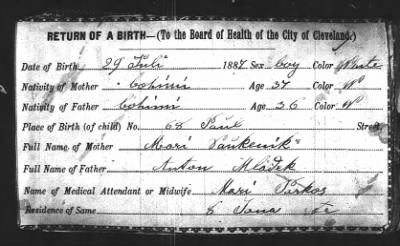 RETURN OF A BIRTH—(To the Board of Health of the City of Cleveland.)
Date of Birth 29 Juli 1887 Sex boy Color White
Nativity of Mother bohimi Age 37 Color W
Nativity of Father bohimi Age 36 Color W
Place of Birth (of child) No. 68 Paul Street
Full Name of Mother Mari
Full Name of Father Anton Mládek
Name of Medical Attendant or Midwife Mari
Residence of Same 8